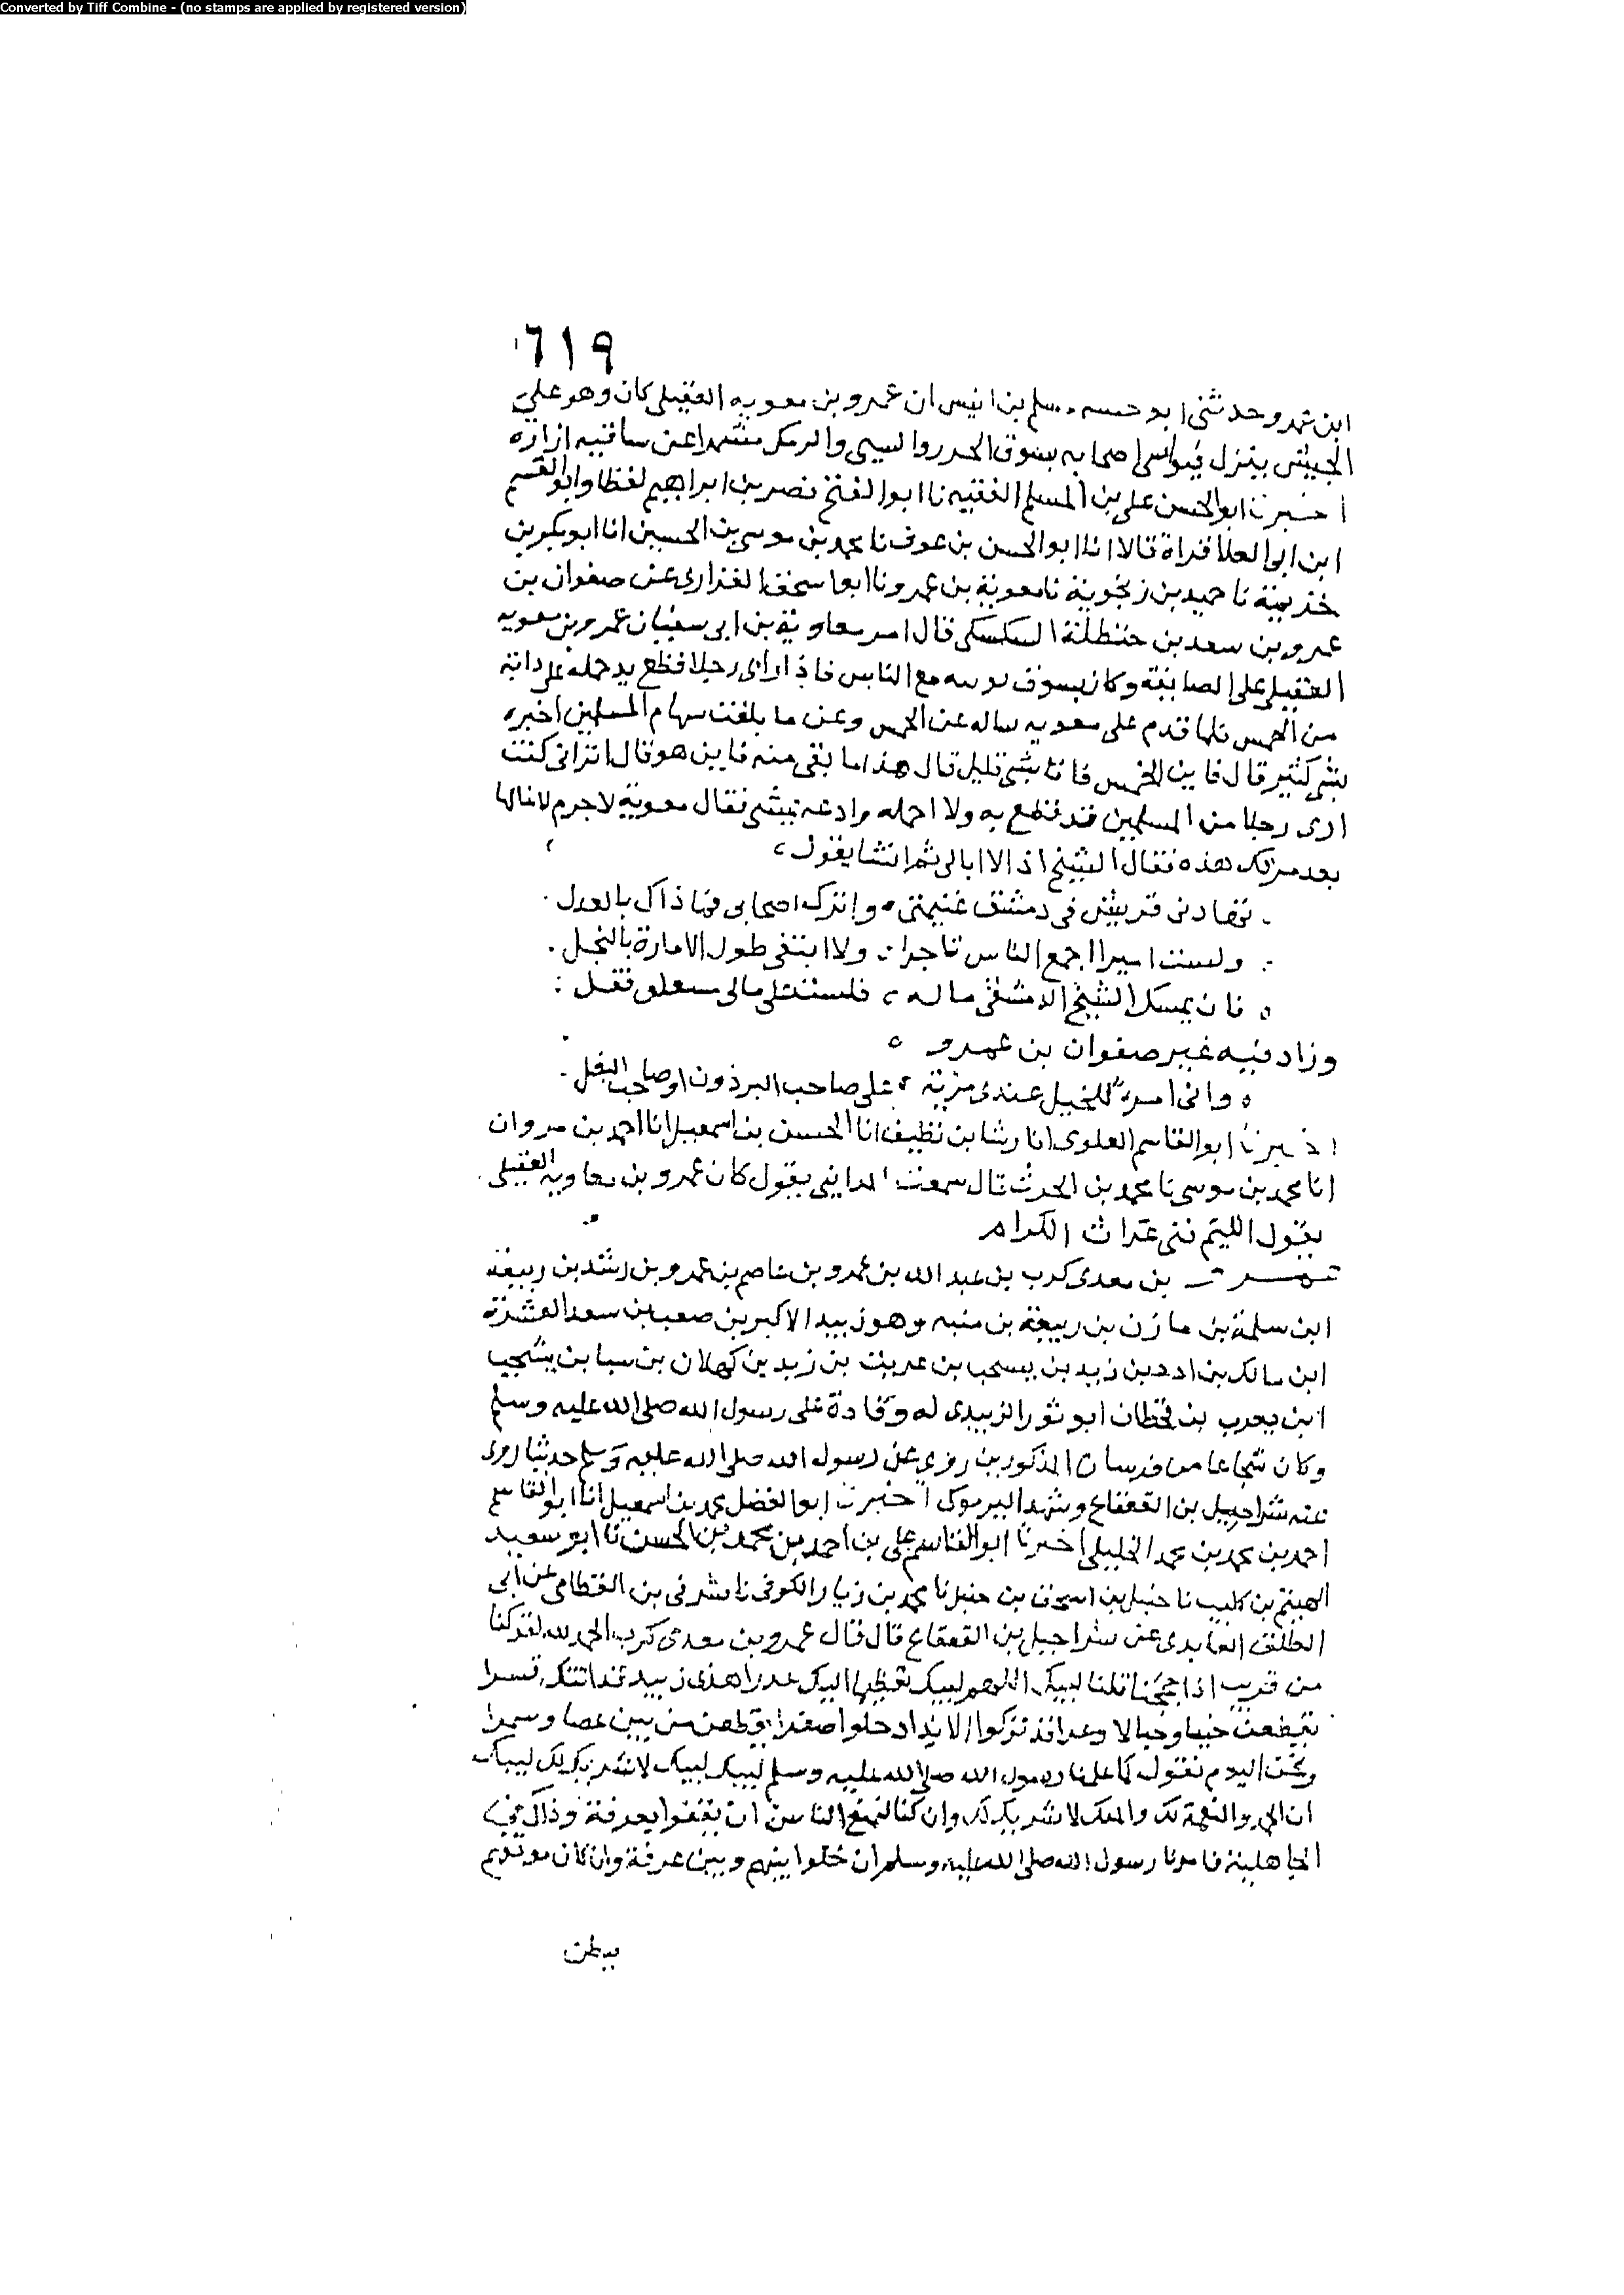 Converted by Tiff Combine - (no stamps are applied by registered version)
٦١٩
وحدثني ابو مسلم بن انيس ان عمرو بن معويه العقيلي كان وهو علي
الجيش ينزل اصحابه بسوق السبي مشمرا عن ساقيه ازاره
اخبرنا ابو الحسن علي بن المسلم الفقيه نا ابو الفتح نصر بن ابراهيم لفظا وابو القسم
ابن ابي العلا قراة قالا انا ابو الحسن بن عوف نا محمد بن موسى بن الحسين انا ابو بكر بن
خزيمة نا حميد بن زنجوية نا معوية بن عمرو نا ابو اسحق الفزارى عن صفوان بن
عمرو بن سعد بن حنظلة السكسكى قال امر معاوية بن ابى سفيان عمرو بن معويه
العقيلي على الصايفة وكان يسوق مع الناس فاذا راى رجلا قطع به حمله على دابة
من الخمس فلما قدم على معويه ساله عن الخمس وعن ما بلغت سهام المسلمين اخبره
بشى كثير قال فاين الخمس فاتا بشى قليل قال هذا ما بقى منه فاين هو قال اتراني كنت
ارى رجلا من المسلمين قد قطع به ولا احمله وادعه بشى فقال معوية لا جرم لا تنالها
بعد مرتك هذه فقال الشيخ اذا لا ابالى ثم انشا يقول
تهادى قريش فى دمشق غنيمتى وانرك اصحابى فما ذاك بالعدل
ولست اميرا اجمع الناس تاجرا ولا ابتغى طول الامارة بالبخل
فان يمسك الشيخ الدمشقى ماله فلست على مالى بمغلق قفل
وزاد فيه غير صفوان بن عمرو
وانى امرؤ للخيل عندى مزية على صاحب البرذون او صاحب البغل
اخبرنا ابو القاسم العلوى انا رشا بن نظيف انا الحسن بن اسمعيل انا احمد بن مروان
انا محمد بن موسى نا محمد بن الحرث قال سمعت المدايني يقول كان عمرو بن معاوية العقيلى
يقول اللهم قنى عثرات الكرام
عمرو بن معدى كرب بن عبد الله بن عمرو بن عاصم بن عمرو بن ربيعة
ابن سلمة بن مازن بن ربيعة بن منبه وهو زبيد الاكبر بن صعب بن سعد العشيرة
ابن مالك بن ادد بن زيد بن يشجب بن عريب بن زيد بن كهلان بن سبا بن يشجب
ابن يعرب بن قحطان ابو ثور الزبيدى له وفادة على رسول الله صلى الله عليه وسلم
وكان شجاعا من فرسان المذكورين روى عن رسول الله صلى الله عليه وسلم حديثا روى
عنه شراحيل بن القعقاع وشهد اليرموك اخبرنا ابو الفضل محمد بن اسمعيل انا ابو القاسم
احمد بن محمد بن محمد الخليلي اخبرنا ابو القاسم علي بن احمد بن محمد بن الحسن نا ابو سعيد
الهيثم بن كليب نا حنبل بن اسحق بن حنبل نا محمد بن زياد الكوفى نا شرقى بن القطامى عن ابي
الطلق العايدى عن شراحيل بن القعقاع قال قال عمرو بن معدى كرب الحمد لله لقد كنا
من قريب اذا حججنا قلنا لبيك اللهم لبيك تعظيما اليك عذرا هذى زبيد قد اتتك قسرا
ونحن اليوم نقول كما علمنا رسول الله صلى الله عليه وسلم لبيك لبيك لا شريك لك لبيك
ان الحمد والنعمة لك والملك لا شريك لك وان كنا لنمنع الناس ان يقفوا بعرفة وذاك في
الجاهلية فامرنا رسول الله صلى الله عليه وسلم ان خلوا بينهم وبين عرفة وان كان موقفهم
ببطن